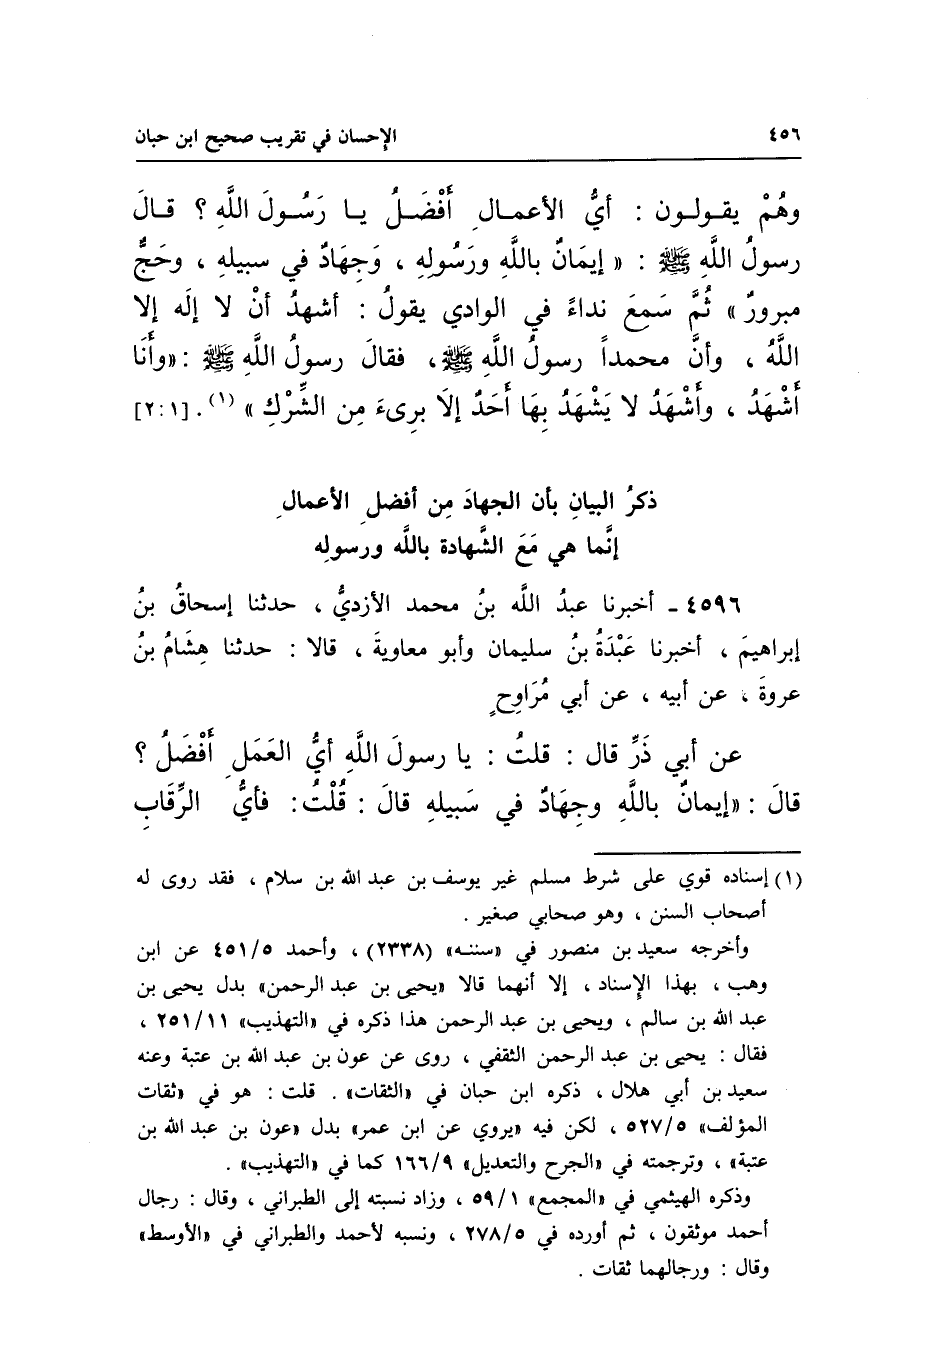 ٤٥٦ الإحسان في تقريب صحيح ابن حبان
وهُمْ يقولون : أيُّ الأعمالِ أَفْضَلُ يا رَسُولَ اللَّهِ ؟ قالَ
رسولُ اللَّهِ ﷺ : « إيمَانٌ باللَّهِ ورَسُولِهِ ، وَجِهَادٌ في سبيلهِ ، وحَجٌّ
مبرورٌ » ثُمَّ سَمِعَ نداءً في الوادي يقولُ : أشهدُ أنْ لا إلَه إلا
اللَّهُ ، وأنَّ محمداً رسولُ اللَّهِ ﷺ ، فقالَ رسولُ اللَّهِ ﷺ : «وأَنَا
أَشْهَدُ ، وأَشْهَدُ لا يَشْهَدُ بِهَا أَحَدٌ إلاَ برىءَ مِن الشِّرْكِ » (١) . [٢:١]
ذكرُ البيانِ بأن الجهادَ مِن أفضلِ الأعمالِ
إنَّما هي مَعَ الشَّهادة باللَّه ورسولِه
٤٥٩٦ - أخبرنا عبدُ اللَّه بنُ محمد الأزديُّ ، حدثنا إسحاقُ بنُ
إبراهيمَ ، أخبرنا عَبْدَةُ بنُ سليمان وأبو معاويةَ ، قالا : حدثنا هِشَامُ بنُ
عروةَ ، عن أبيه ، عن أبي مُرَاوِحٍ
عن أبي ذَرٍّ قال : قلتُ : يا رسولَ اللَّهِ أيُّ العَمَلِ أَفْضَلُ ؟
قالَ : «إيمانٌ باللَّهِ وجِهَادٌ في سَبيلهِ قالَ : قُلْتُ : فأيُّ الرِّقَابِ
(١) إسناده قوي على شرط مسلم غير يوسف بن عبد الله بن سلام ، فقد روى له
أصحاب السنن ، وهو صحابي صغير .
وأخرجه سعيد بن منصور في «سننه» (٢٣٣٨) ، وأحمد ٤٥١/٥ عن ابن
وهب ، بهذا الإسناد ، إلا أنهما قالا «يحيى بن عبد الرحمن» بدل يحيى بن
عبد الله بن سالم ، ويحيى بن عبد الرحمن هذا ذكره في «التهذيب» ٢٥١/١١ ،
فقال : يحيى بن عبد الرحمن الثقفي ، روى عن عون بن عبد الله بن عتبة وعنه
سعيد بن أبي هلال ، ذكره ابن حبان في «الثقات» . قلت : هو في «ثقات
المؤلف» ٥٢٧/٥ ، لكن فيه «يروي عن ابن عمر» بدل «عون بن عبد الله بن
عتبة» ، وترجمته في «الجرح والتعديل» ١٦٦/٩ كما في «التهذيب» .
وذكره الهيثمي في «المجمع» ٥٩/١ ، وزاد نسبته إلى الطبراني ، وقال : رجال
أحمد موثقون ، ثم أورده في ٢٧٨/٥ ، ونسبه لأحمد والطبراني في «الأوسط»
وقال : ورجالهما ثقات .